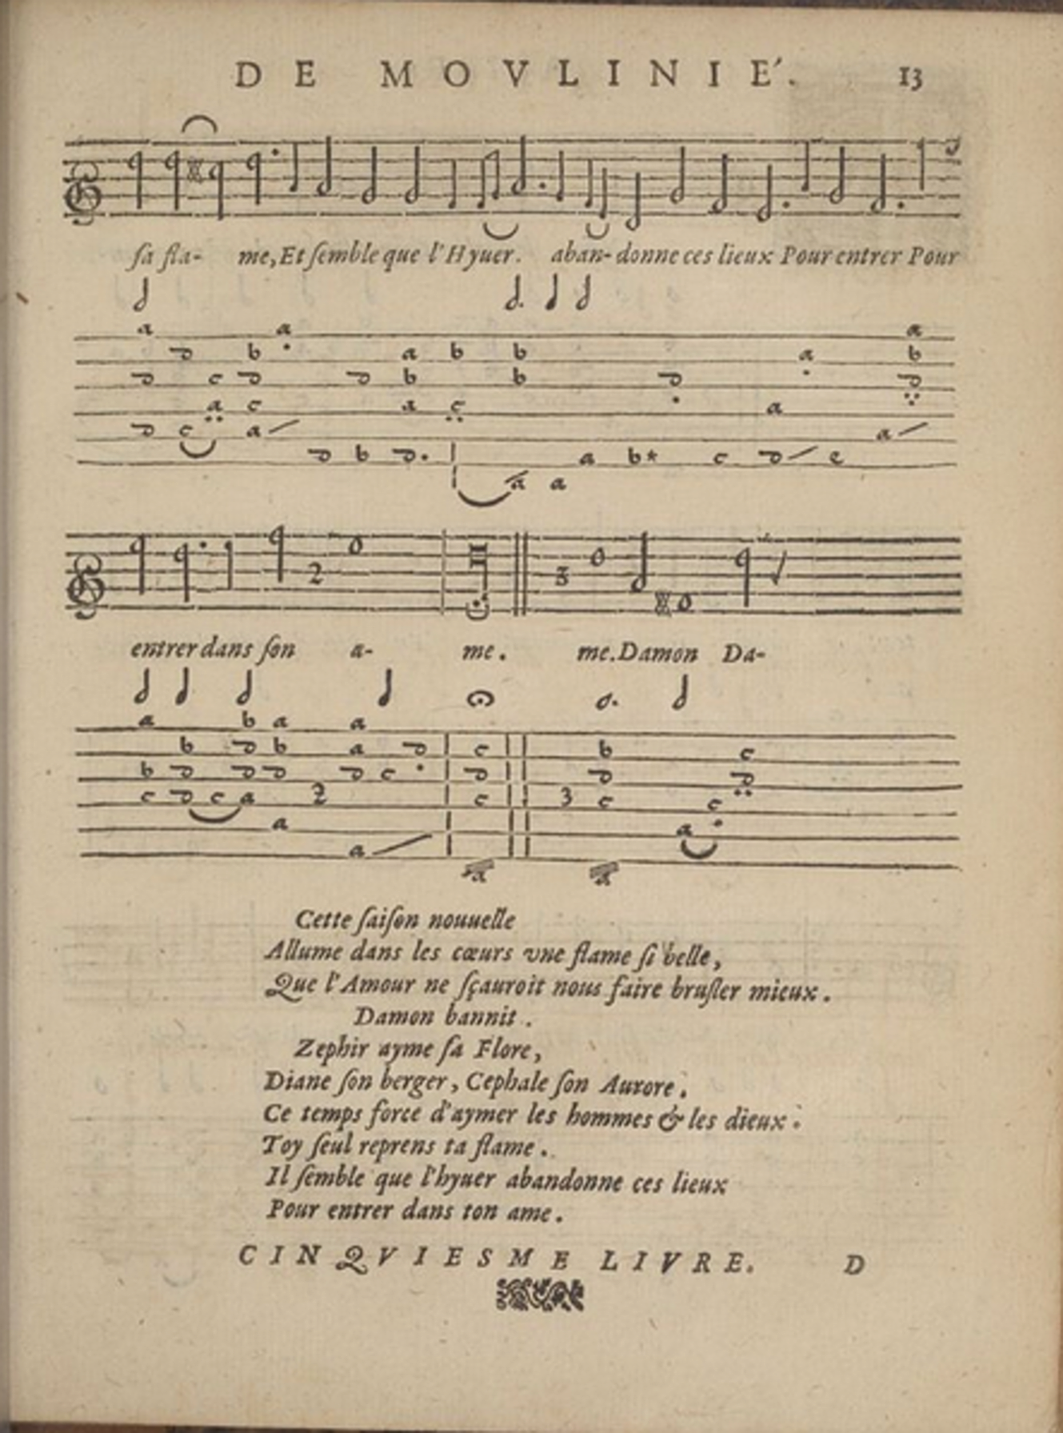 DE MOVLINIE'. 13
ſa fla- me, Et ſemble que l'Hyuer. aban- donne ces lieux Pour entrer Pour
entrer dans ſon a- me. me. Damon Da-
Cette ſaiſon nouuelle
Allume dans les cœurs vne flame ſi belle,
Que l'Amour ne ſçauroit nous faire bruſler mieux.
Damon bannit.
Zephir ayme ſa Flore,
Diane ſon berger, Cephale ſon Aurore,
Ce temps force d'aymer les hommes & les dieux:
Toy ſeul reprens ta flame.
Il ſemble que l'hyuer abandonne ces lieux
Pour entrer dans ton ame.
CINQVIESME LIVRE. D